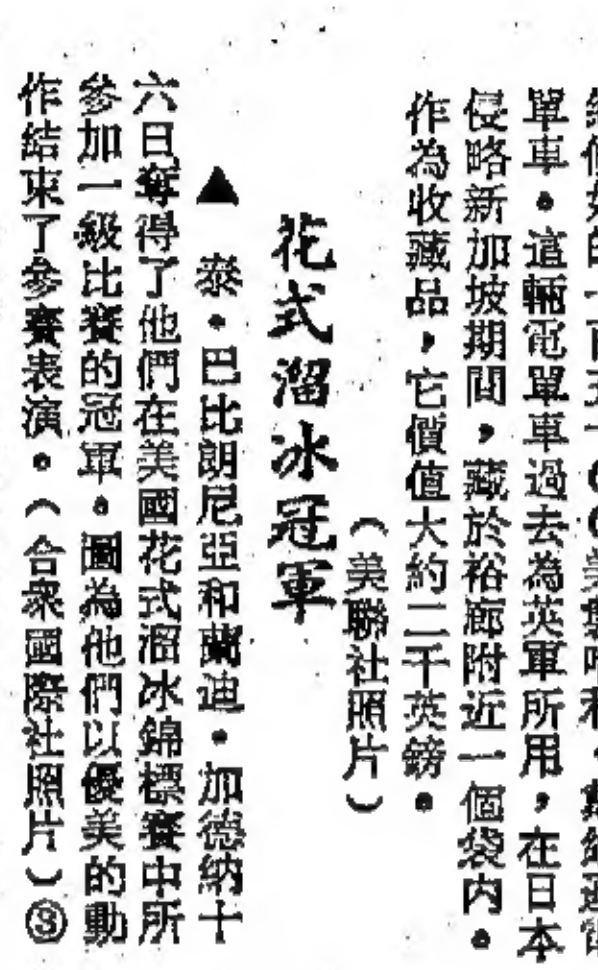 單車。這輛電單車過去為英軍所用，在日本
侵略新加坡期間，藏於裕廊附近一個袋內。
作為收藏品，它價值大約二千英鎊。
（美聯社照片）
花式溜冰冠軍
▲　泰・巴比朗尼亞和蘭迪・加德納十
六日奪得了他們在美國花式溜冰錦標賽中所
參加一級比賽的冠軍。圖為他們以優美的動
作結束了參賽表演。（合衆國際社照片）③